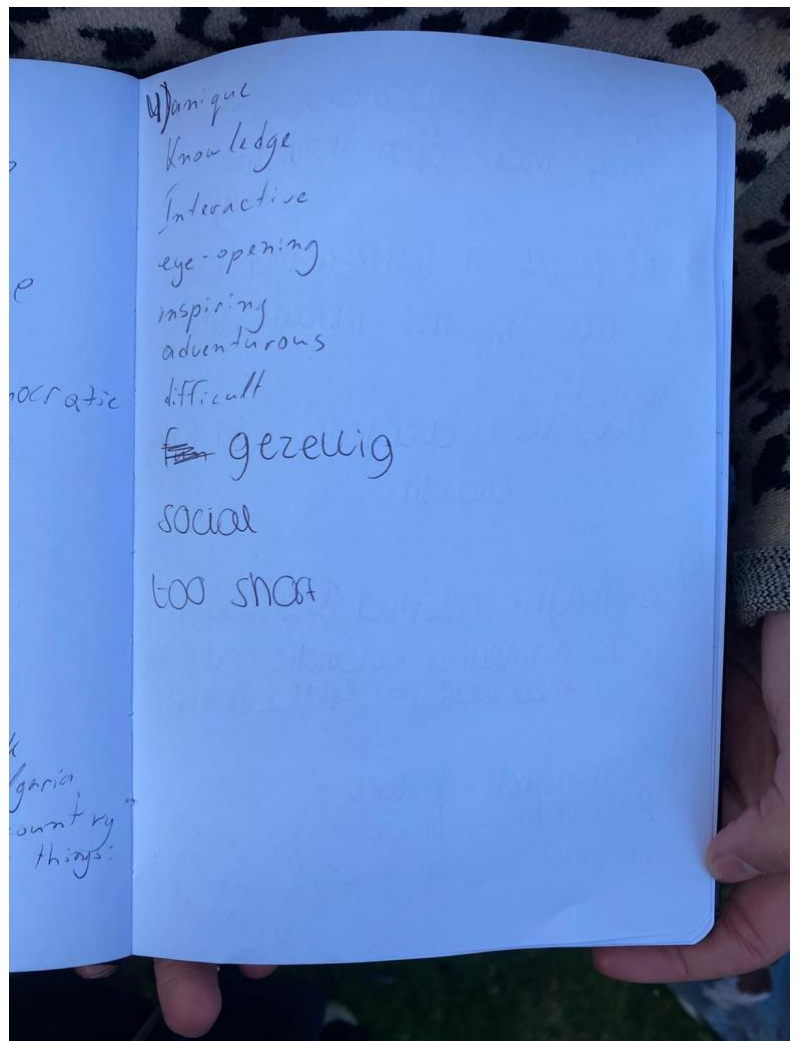 e
nocratie
garia
country
things:
4) unique
Knowledge
Interactive
eye-opening
inspiring
adventurous
difficult
gezellig
social
too short